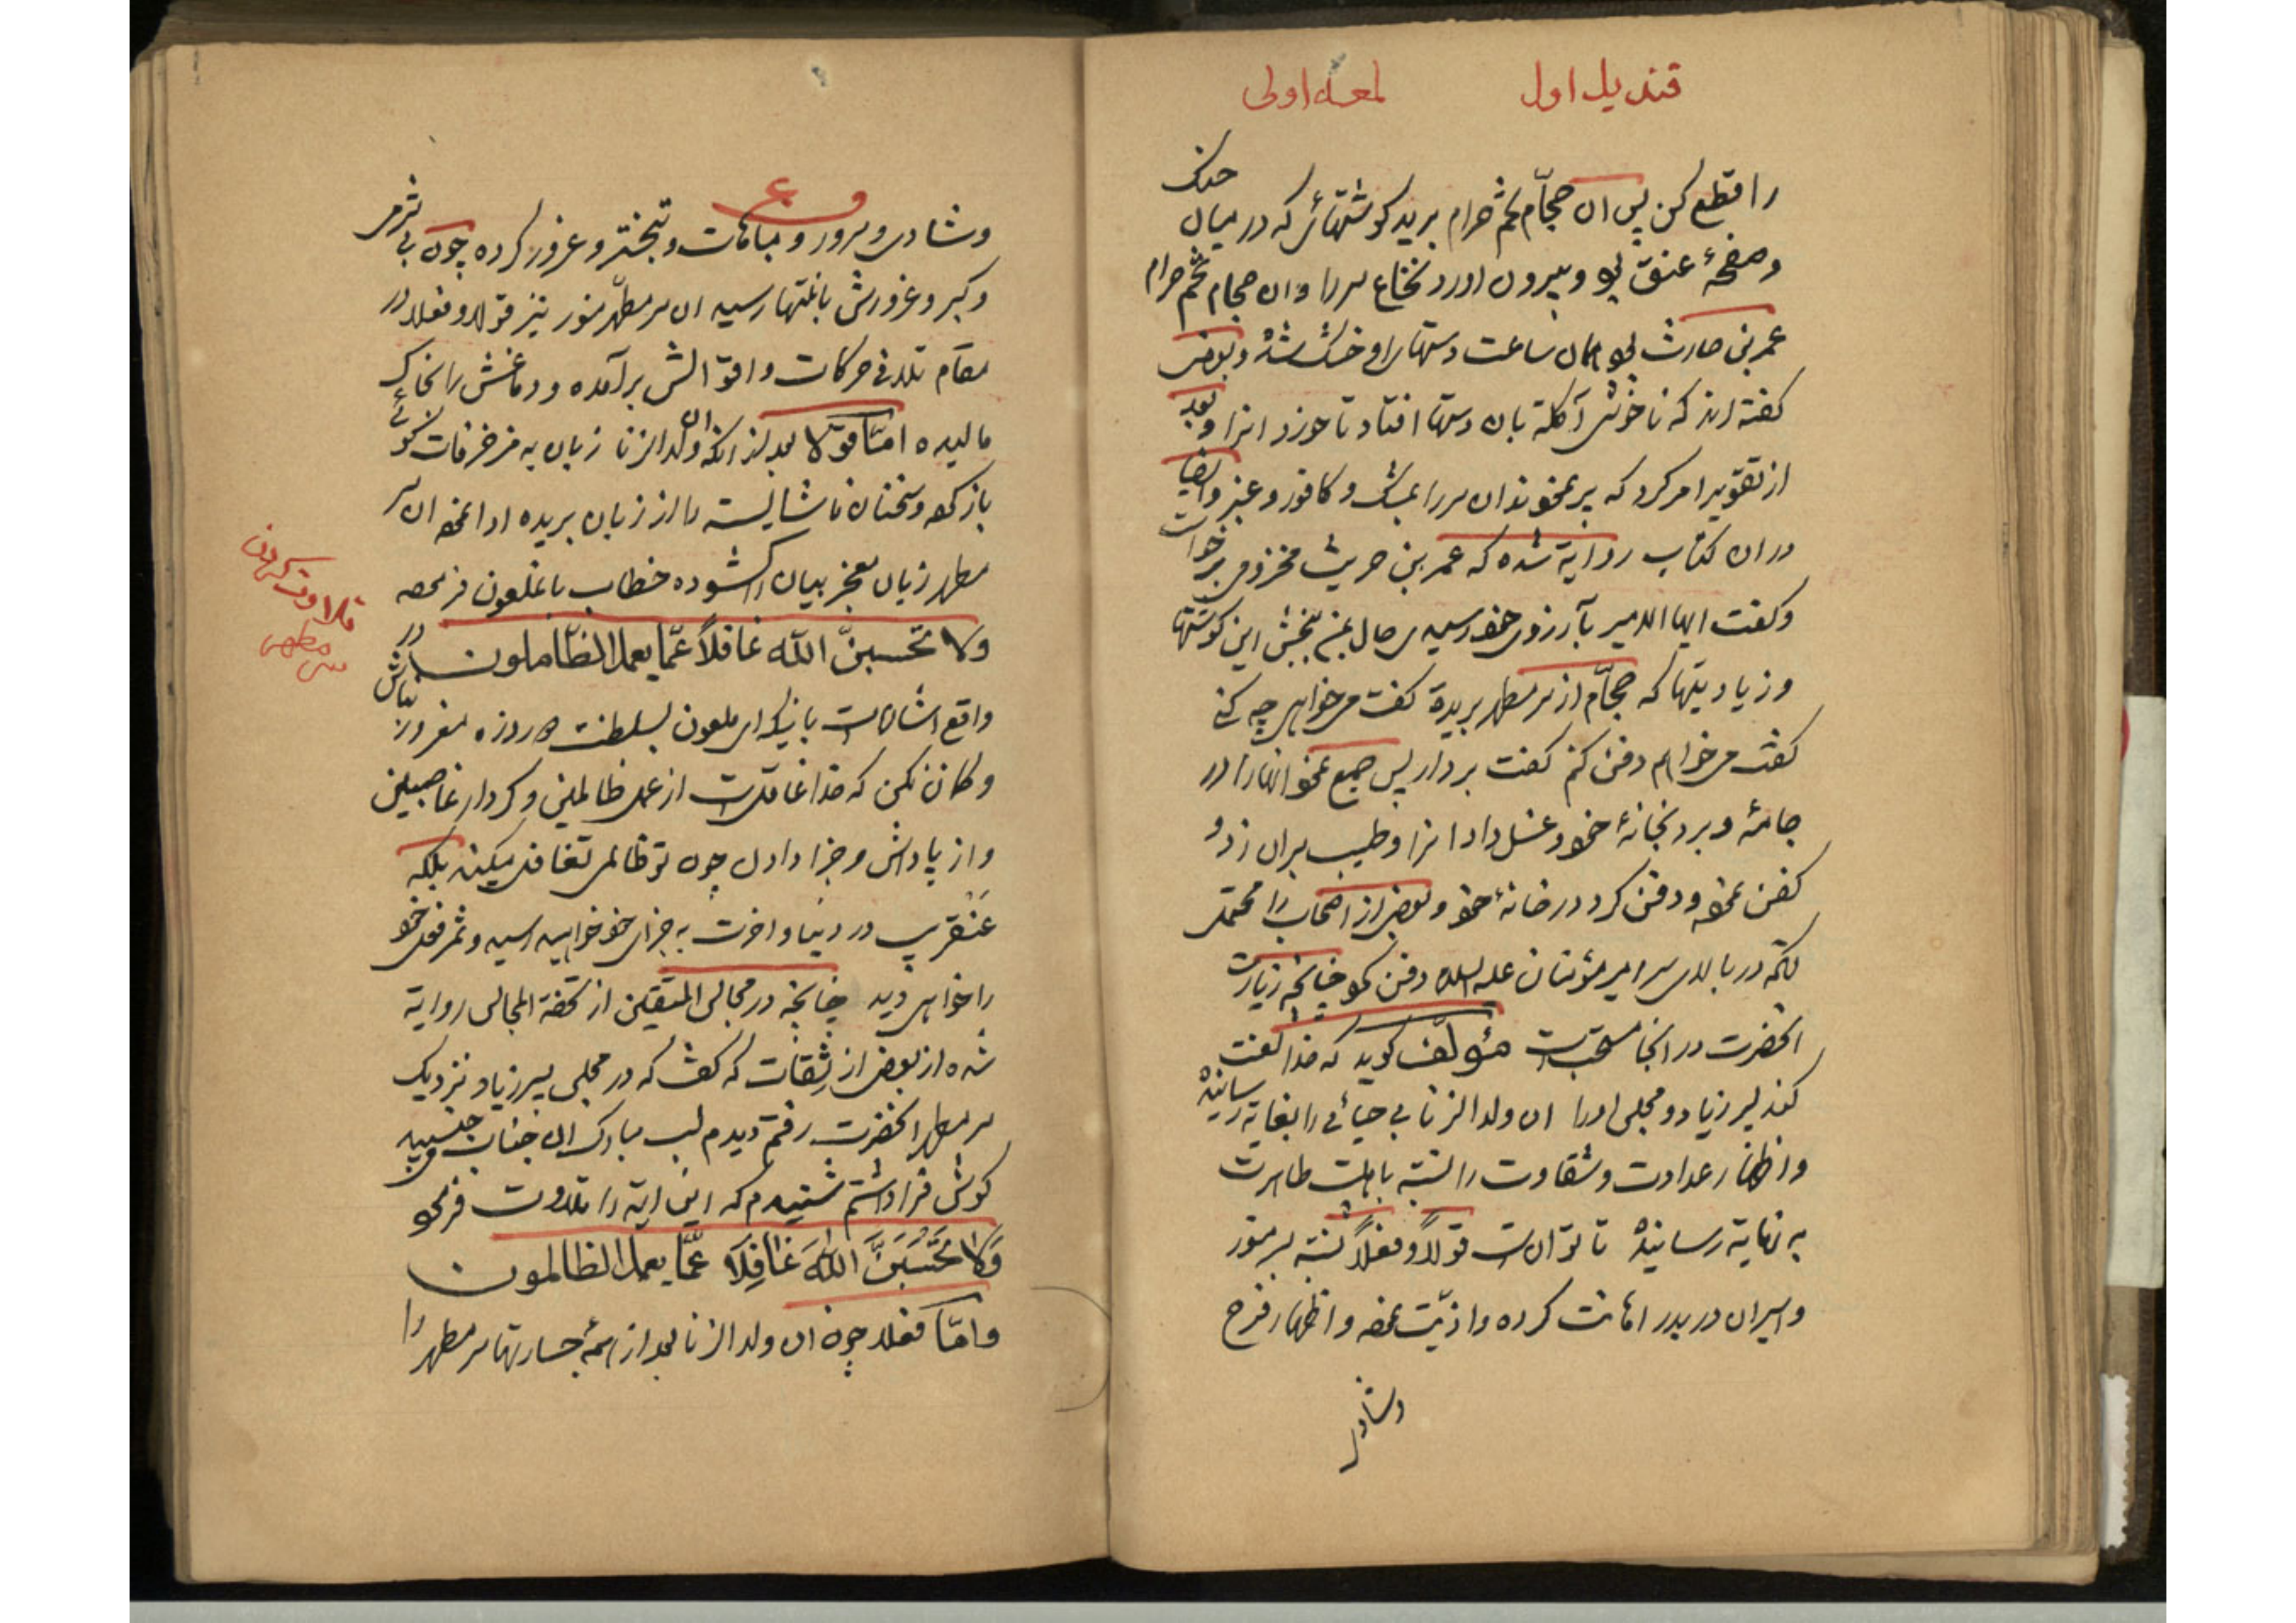 قندیل اول لمعه اولی
را قطع کن پس ان حجّام تخم حرام برید کوشتهائی که در میان حنک
و صفحهٔ عنق بو و بیرون اورد نخاع سر را و ان حجام تخم حرام
عمر بن حارث بو همان ساعت دستهای او خشک شد و بعضی
کفته اند که ناخوشی آکلة بان دستها افتاد تا خورد انرا و بعد
از تقویر امر کرد که پر نمودند ان سر را بمشک و کافور و عنبر و ایضا
در ان کتاب روایة شده که عمر بن حریث مخزومی برخواست
و کفت ایها الامیر بآرزوی خود رسیدی حال بمن ببخش این کوشتها
و زیادیتها که حجّام از سر مطهر بریدة کفت می خواهی چه کنی
کفت می خواهم دفن کنم کفت بردار پس جمع نمود انها را در
جامهٔ و برد بخانهٔ خود و غسل داد انرا و طیب بران زد و
کفن نمود و دفن کرد در خانهٔ خود و بعضی از اصحاب را محتمل
در بالای سر امیر مؤمنان علیه السلام دفن نمود چنانچه زیارت
انحضرت در انجا مستحبست مؤلف کوید که خدا لعنت
کند پسر زیاد و مجلس او را ان ولد الزنا بی حیائی را بغایة رسانیدة
و اظهار عداوت و شقاوت را نسبة باهلبیت طاهرت
به نهایة رسانیدة تا توانست قولاً و فعلاً نسبة بسر منور
و اسیران دربدر اهانت کرده و اذیّت نموده و اظهار فرح
و شادی
و شادی و سرور و مباهات و تبختر و غرور کرده چون بی شرمی
و کبر و غرورش بانتها رسید ان سر مطهّر منور نیز قولا و فعلا در
مقام تلافی حرکات و اقوالش برآمده و دماغش را بخاک
مالیده امّا قوّلا بعد از انکه ان ولد الزنا زبان به مزخرفات کوئی
باز کرد و سخنان ناشایسته را از زبان بریده ادا نمود ان سر
مطهر زبان معجز بیان را کشوده خطاب بانملعون فرمود
ولا تحسبنّ الله غافلاً عمّا یعمل الظّالمون در
واقع اشاراست باینکه ای ملعون بسلطنت ده روزه مغرور مباش
و کمان نکن که خدا غافلست از عمل ظالمین و کردار غاصبین
و از پاداش و جزا دادن چون تو ظالمی تغافل میکند بلکه
عنقریب در دنیا و اخرت به جزای خود خواهید رسید و ثمر فعل خود
را خواهی دید چنانچه در مجالس المتقین از تحفة المجالس روایة
شده از بعضی از ثِقات که کفت که در مجلس پسر زیاد نزدیک
سر مطهر انحضرت رفتم دیدم لب مبارک ان جناب جنبید من
کوش فرا داشتم شنیدم که این ایة را تلاوت فرمود
وَلا تَحْسَبَنَّ اللهَ غافِلاً عمّا یعمل الظالمون
و امّا فعلا چون ان ولد الزنا بعد از همهٔ جسارتها سر مطهر را
تلاوت کردن
سر مطهر